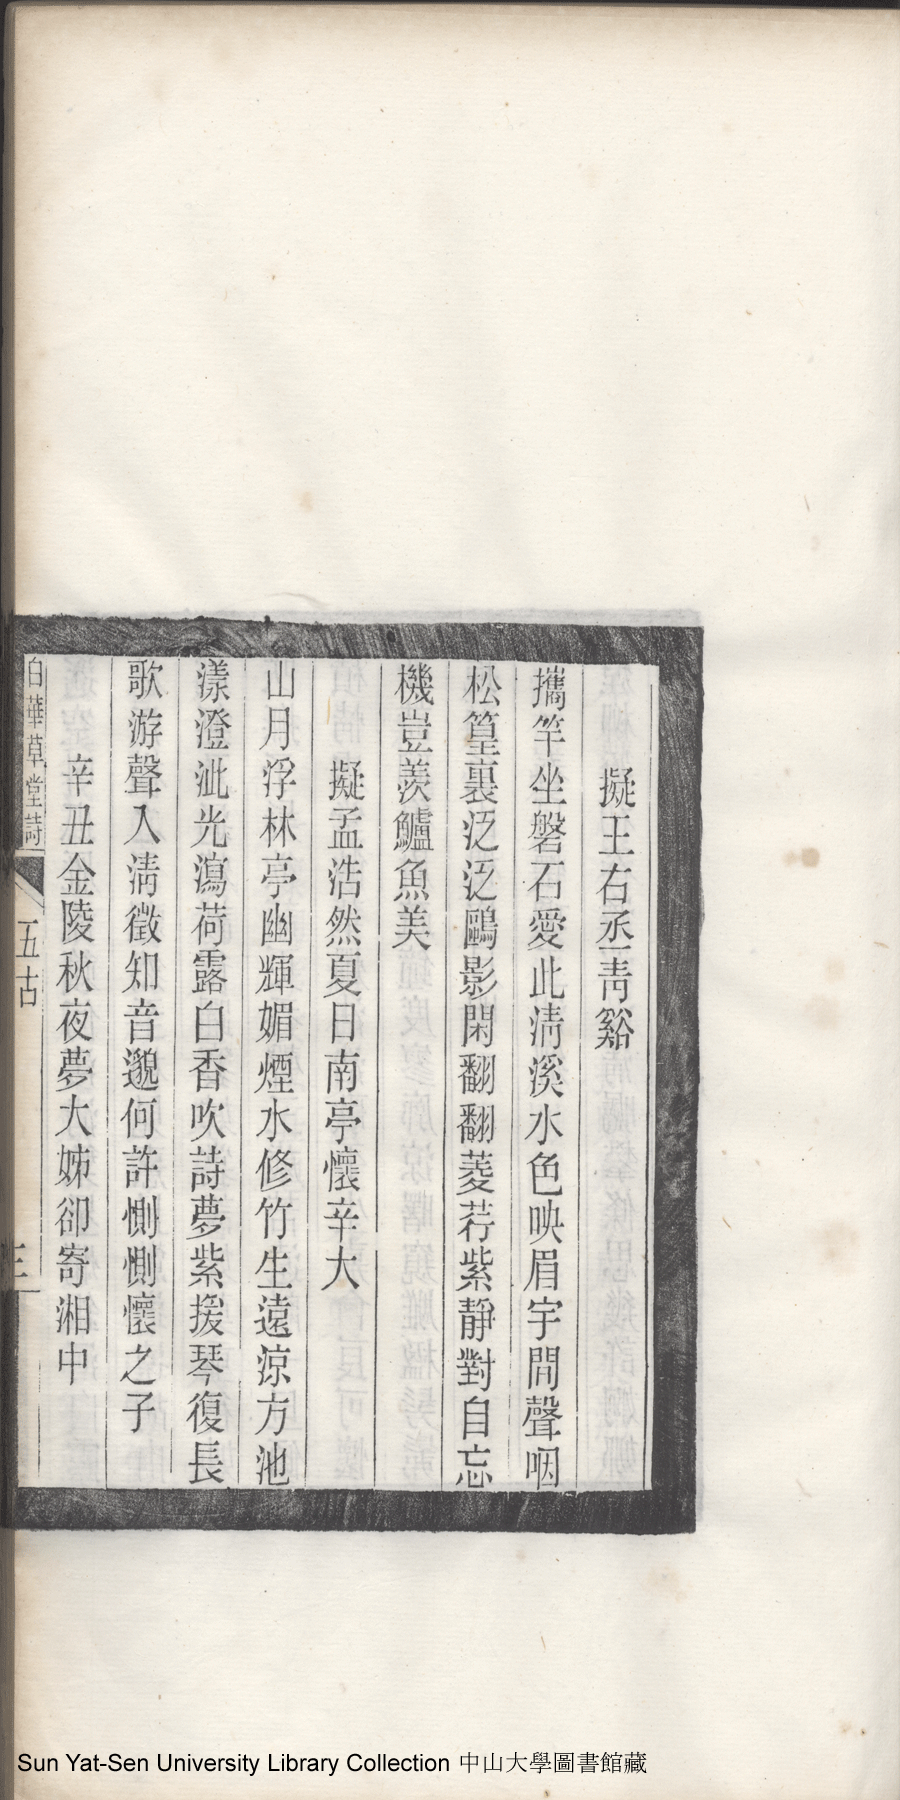 擬王右丞青谿
攜竿坐磐石愛此淸溪水色映眉宇間聲咽
松篁裏泛泛鷗影閑翻翻菱荇紫靜對自忘
機豈羨鱸魚美
擬孟浩然夏日南亭懷辛大
山月浮林亭幽輝媚煙水修竹生遠涼方池
漾澄泚光瀉荷露白香吹詩夢紫援琴復長
歌游聲入淸徵知音邈何許惻惻懷之子
辛丑金陵秋夜夢大姊卻寄湘中
白華草堂詩
五古
三
Sun Yat-Sen University Library Collection 中山大學圖書館藏